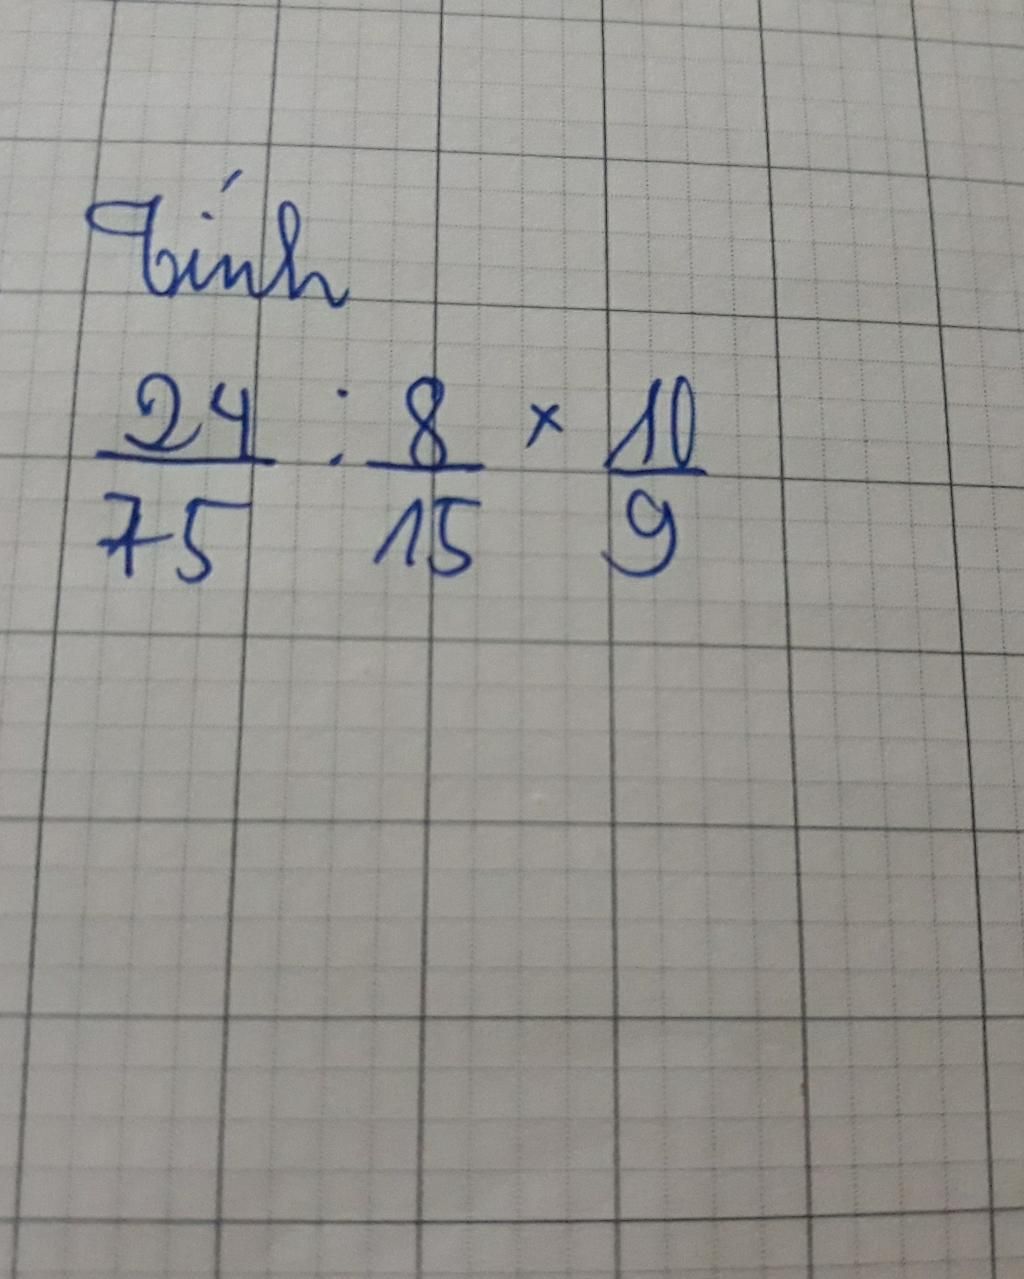 Tính
24/75 : 8/15 × 10/9